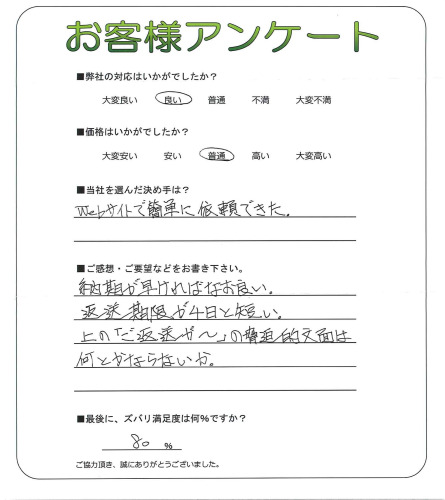 お客様アンケート
■弊社の対応はいかがでしたか？
大変良い 良い 普通 不満 大変不満
■価格はいかがでしたか？
大変安い 安い 普通 高い 大変高い
■当社を選んだ決め手は？
Webサイトで簡単に依頼できた。
■ご感想・ご要望などをお書き下さい。
納期が早ければなお良い。
返送期限が4日と短い。
上の「ご返送が〜」の脅迫的文面は
何とかならないか。
■最後に、ズバリ満足度は何%ですか？
80 %
ご協力頂き、誠にありがとうございました。